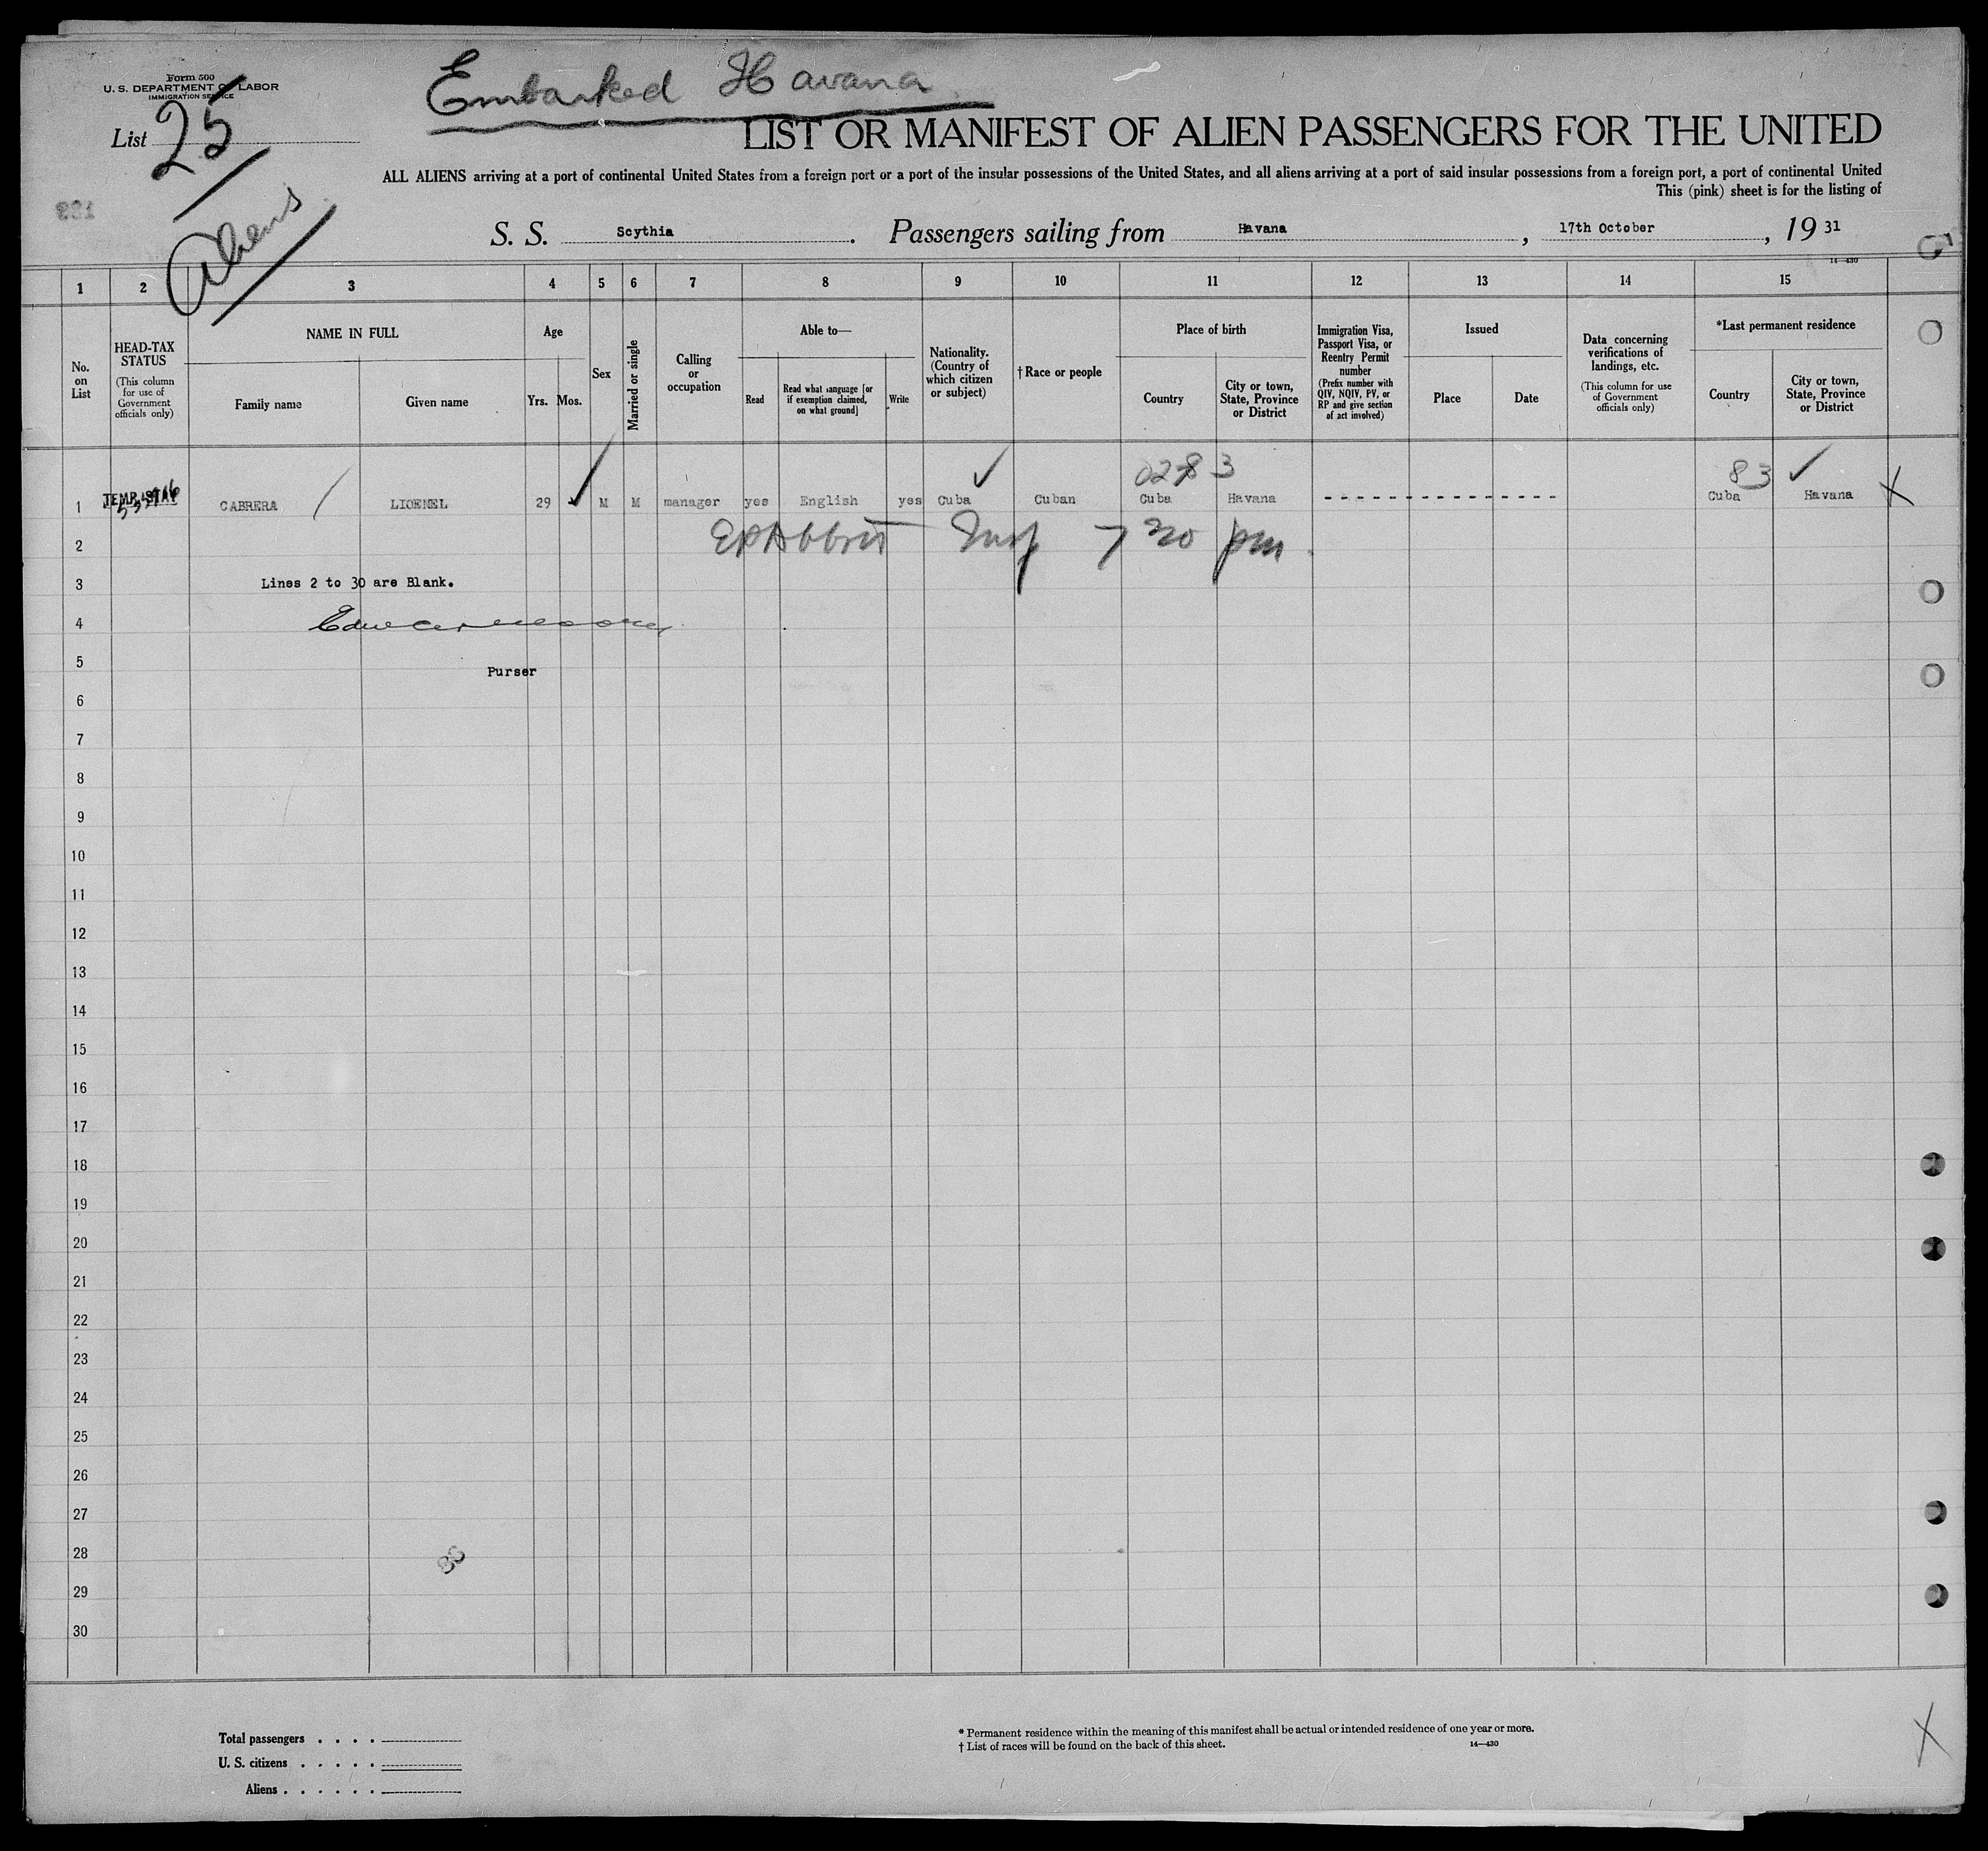 Form 500
U. S. DEPARTMENT OF LABOR
IMMIGRATION SERVICE
Embarked Havana
List 25
Aliens
LIST OR MANIFEST OF ALIEN PASSENGERS FOR THE UNITED
ALL ALIENS arriving at a port of continental United States from a foreign port or a port of the insular possessions of the United States, and all aliens arriving at a port of said insular possessions from a foreign port, a port of continental United
This (pink) sheet is for the listing of
S. S. Scythia. Passengers sailing from Havana, 17th October, 19 31
14—430
1 2 3 4 5 6 7 8 9 10 11 12 13 14 15
No. on List
HEAD-TAX STATUS
(This column for use of Government officials only)
NAME IN FULL
Family name
Given name
Age
Yrs. Mos.
Sex
Married or single
Calling or occupation
Able to—
Read
Read what language [or if exemption claimed, on what ground]
Write
Nationality. (Country of which citizen or subject)
†Race or people
Place of birth
Country
City or town, State, Province or District
Immigration Visa, Passport Visa, or Reentry Permit number
(Prefix number with QIV, NQIV, PV, or RP and give section of act involved)
Issued
Place
Date
Data concerning verifications of landings, etc.
(This column for use of Government officials only)
*Last permanent residence
Country
City or town, State, Province or District
83
1 CABRERA LIOENEL 29 M M manager yes English yes Cuba Cuban Cuba Havana - - - - - - - - - - - - - - - - - - Cuba Havana X
2 Insp 7 30 pm
3 Lines 2 to 30 are Blank.
4
5 Purser
6
7
8
9
10
11
12
13
14
15
16
17
18
19
20
21
22
23
24
25
26
27
28
29
30
Total passengers . . . .
U. S. citizens . . . . .
Aliens . . . . . .
* Permanent residence within the meaning of this manifest shall be actual or intended residence of one year or more.
† List of races will be found on the back of this sheet.
14—430
X